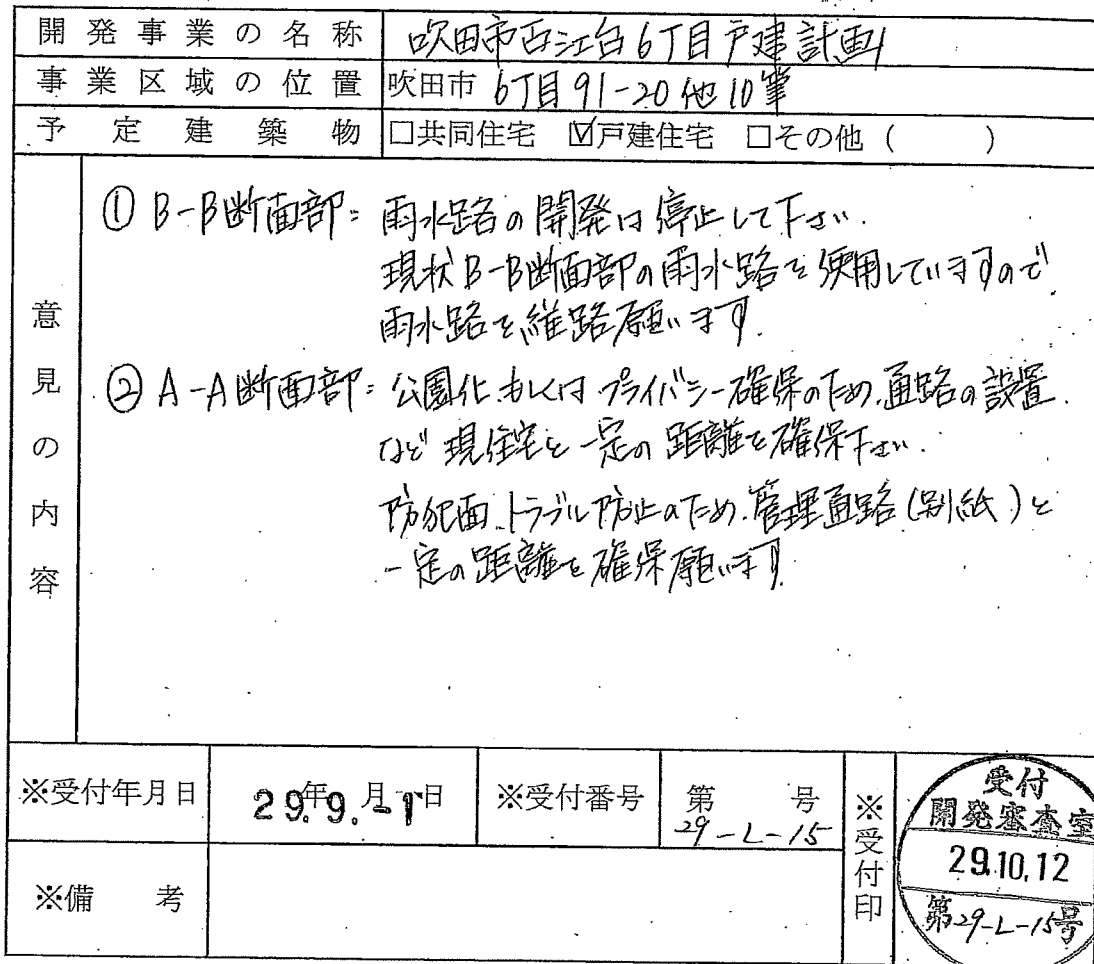 開発事業の名称 吹田市古江台6丁目戸建計画
事業区域の位置 吹田市 6丁目91-20他10筆
予定建築物 □共同住宅 ☑戸建住宅 □その他( )
意見の内容
① B-B断面部: 雨水路の開発は停止して下さい.
現状B-B断面部の雨水路を使用していますので
雨水路を維路願います.
② A-A断面部: 公園化もしくはプライバシー確保のため、通路の設置
など現住宅と一定の距離を確保下さい.
防犯面、トラブル防止のため、管理通路(別紙)と
一定の距離を確保願います.
※受付年月日 年 月 日 29.9.-1
※受付番号 第 号 29-L-15
※受付印
受付
開発審査室
29.10.12
第29-L-15号
※備考